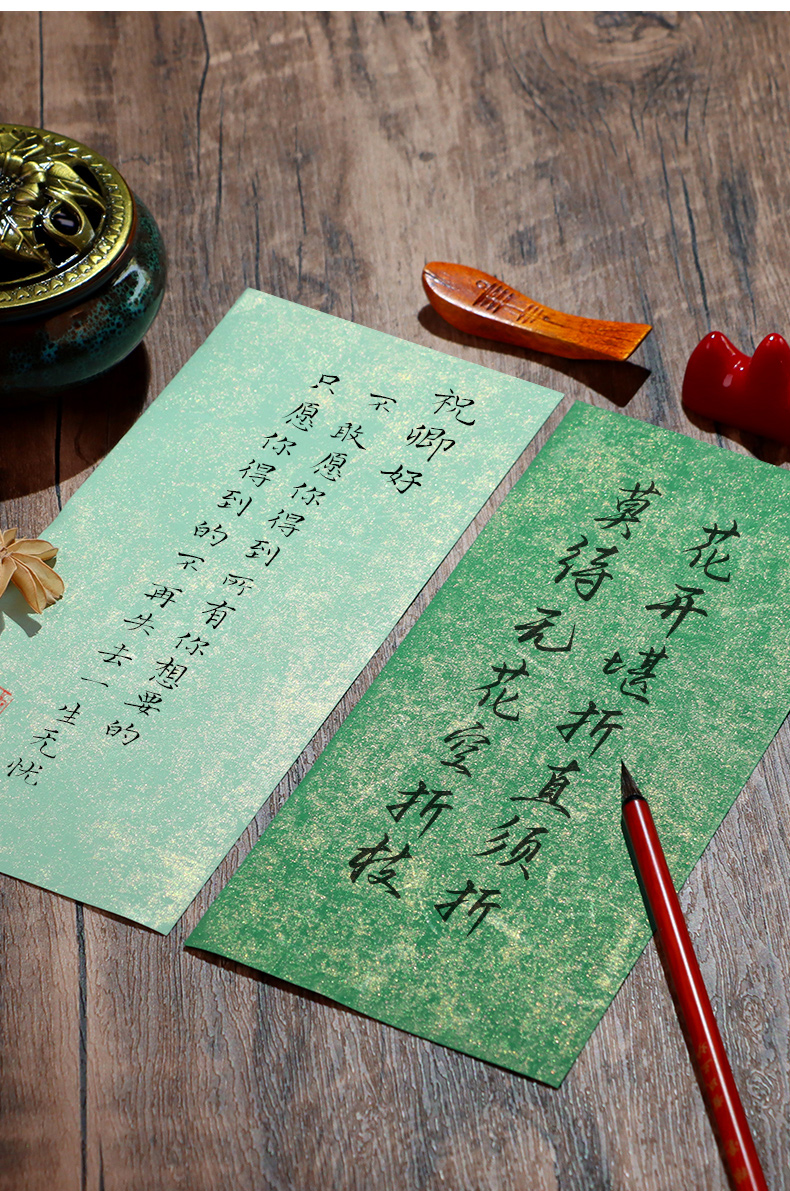 祝卿好
不敢愿你得到所有你想要的
只愿你得到的不再失去一生无忧
花开堪折直须折
莫待无花空折枝